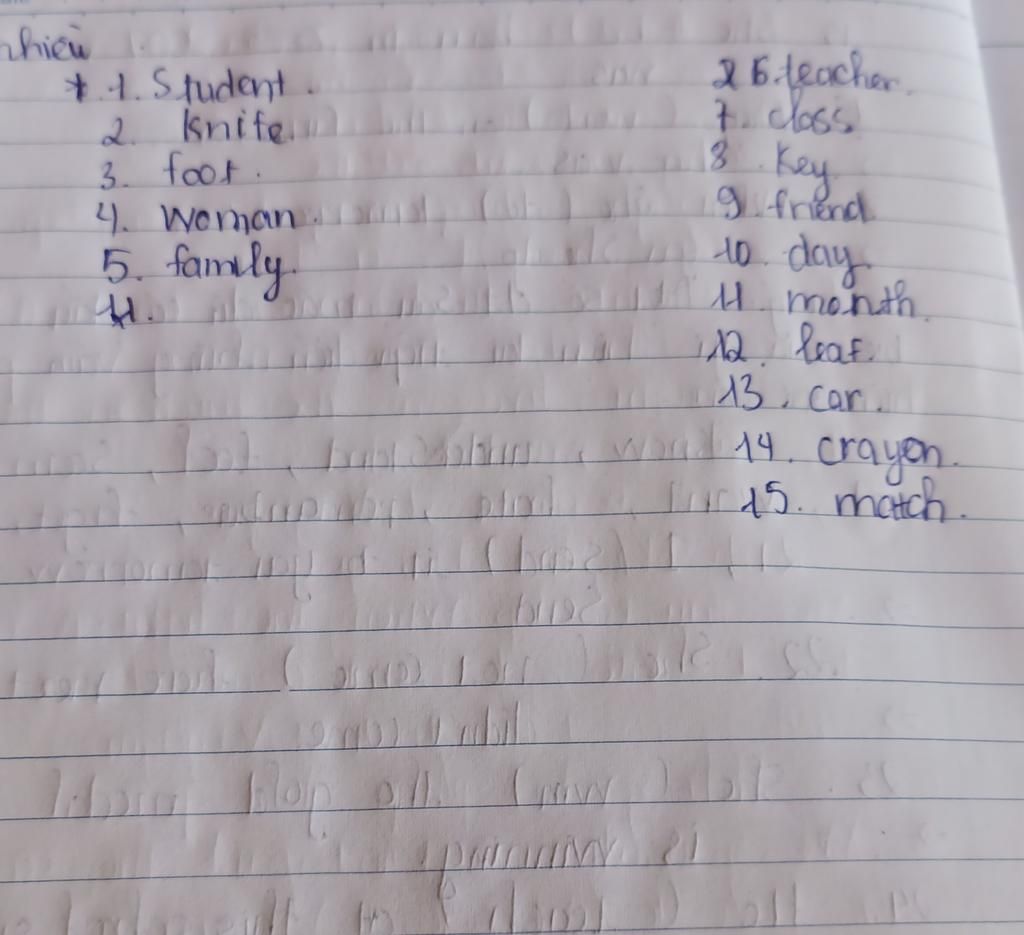 nhiều
* 1. Student.
2. knife.
3. foot.
4. woman.
5. family.
11.
6. teacher.
7. class
8. Key.
9. friend
10. day.
11. month.
12. leaf.
13. car.
14. crayon.
15. match.